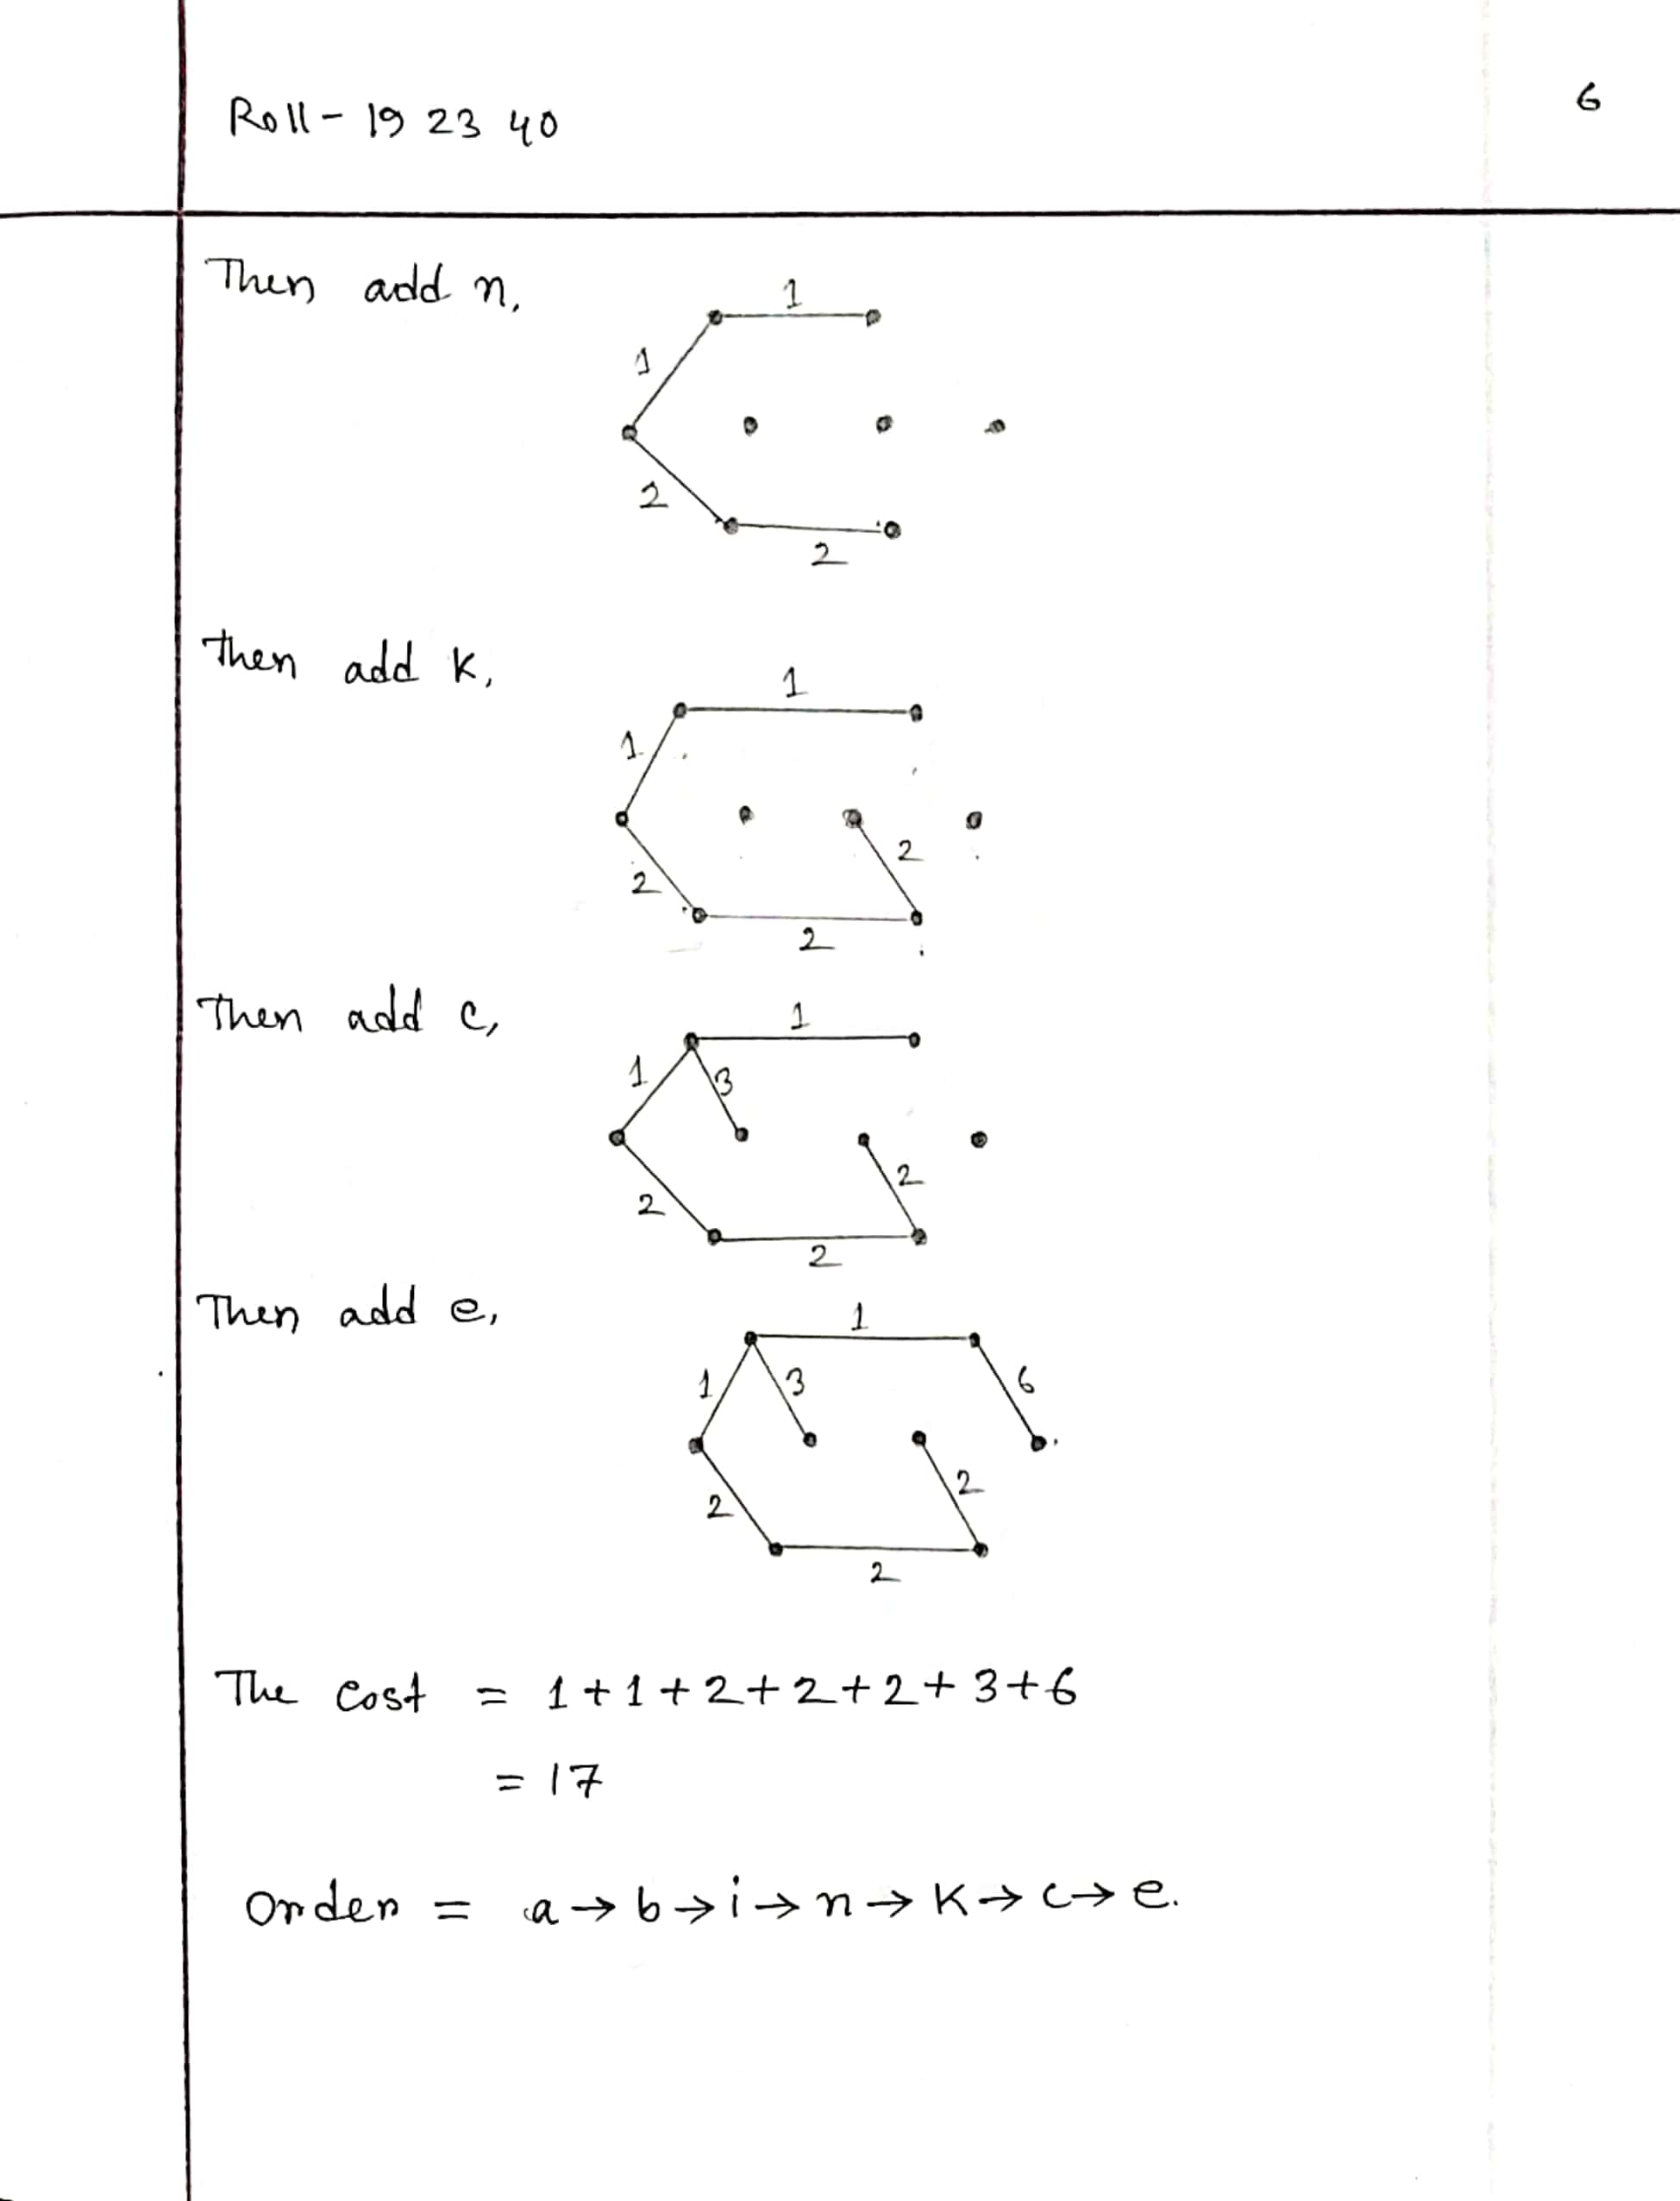 Roll - 19 23 40
6
Then add n,
1
1
2
2
Then add k,
1
1
2
2
2
Then add c,
1
1
3
2
2
2
Then add e,
1
1
3
6
2
2
2
The cost = 1+1+2+2+2+3+6
= 17
Order = a→b→i→n→k→c→e.